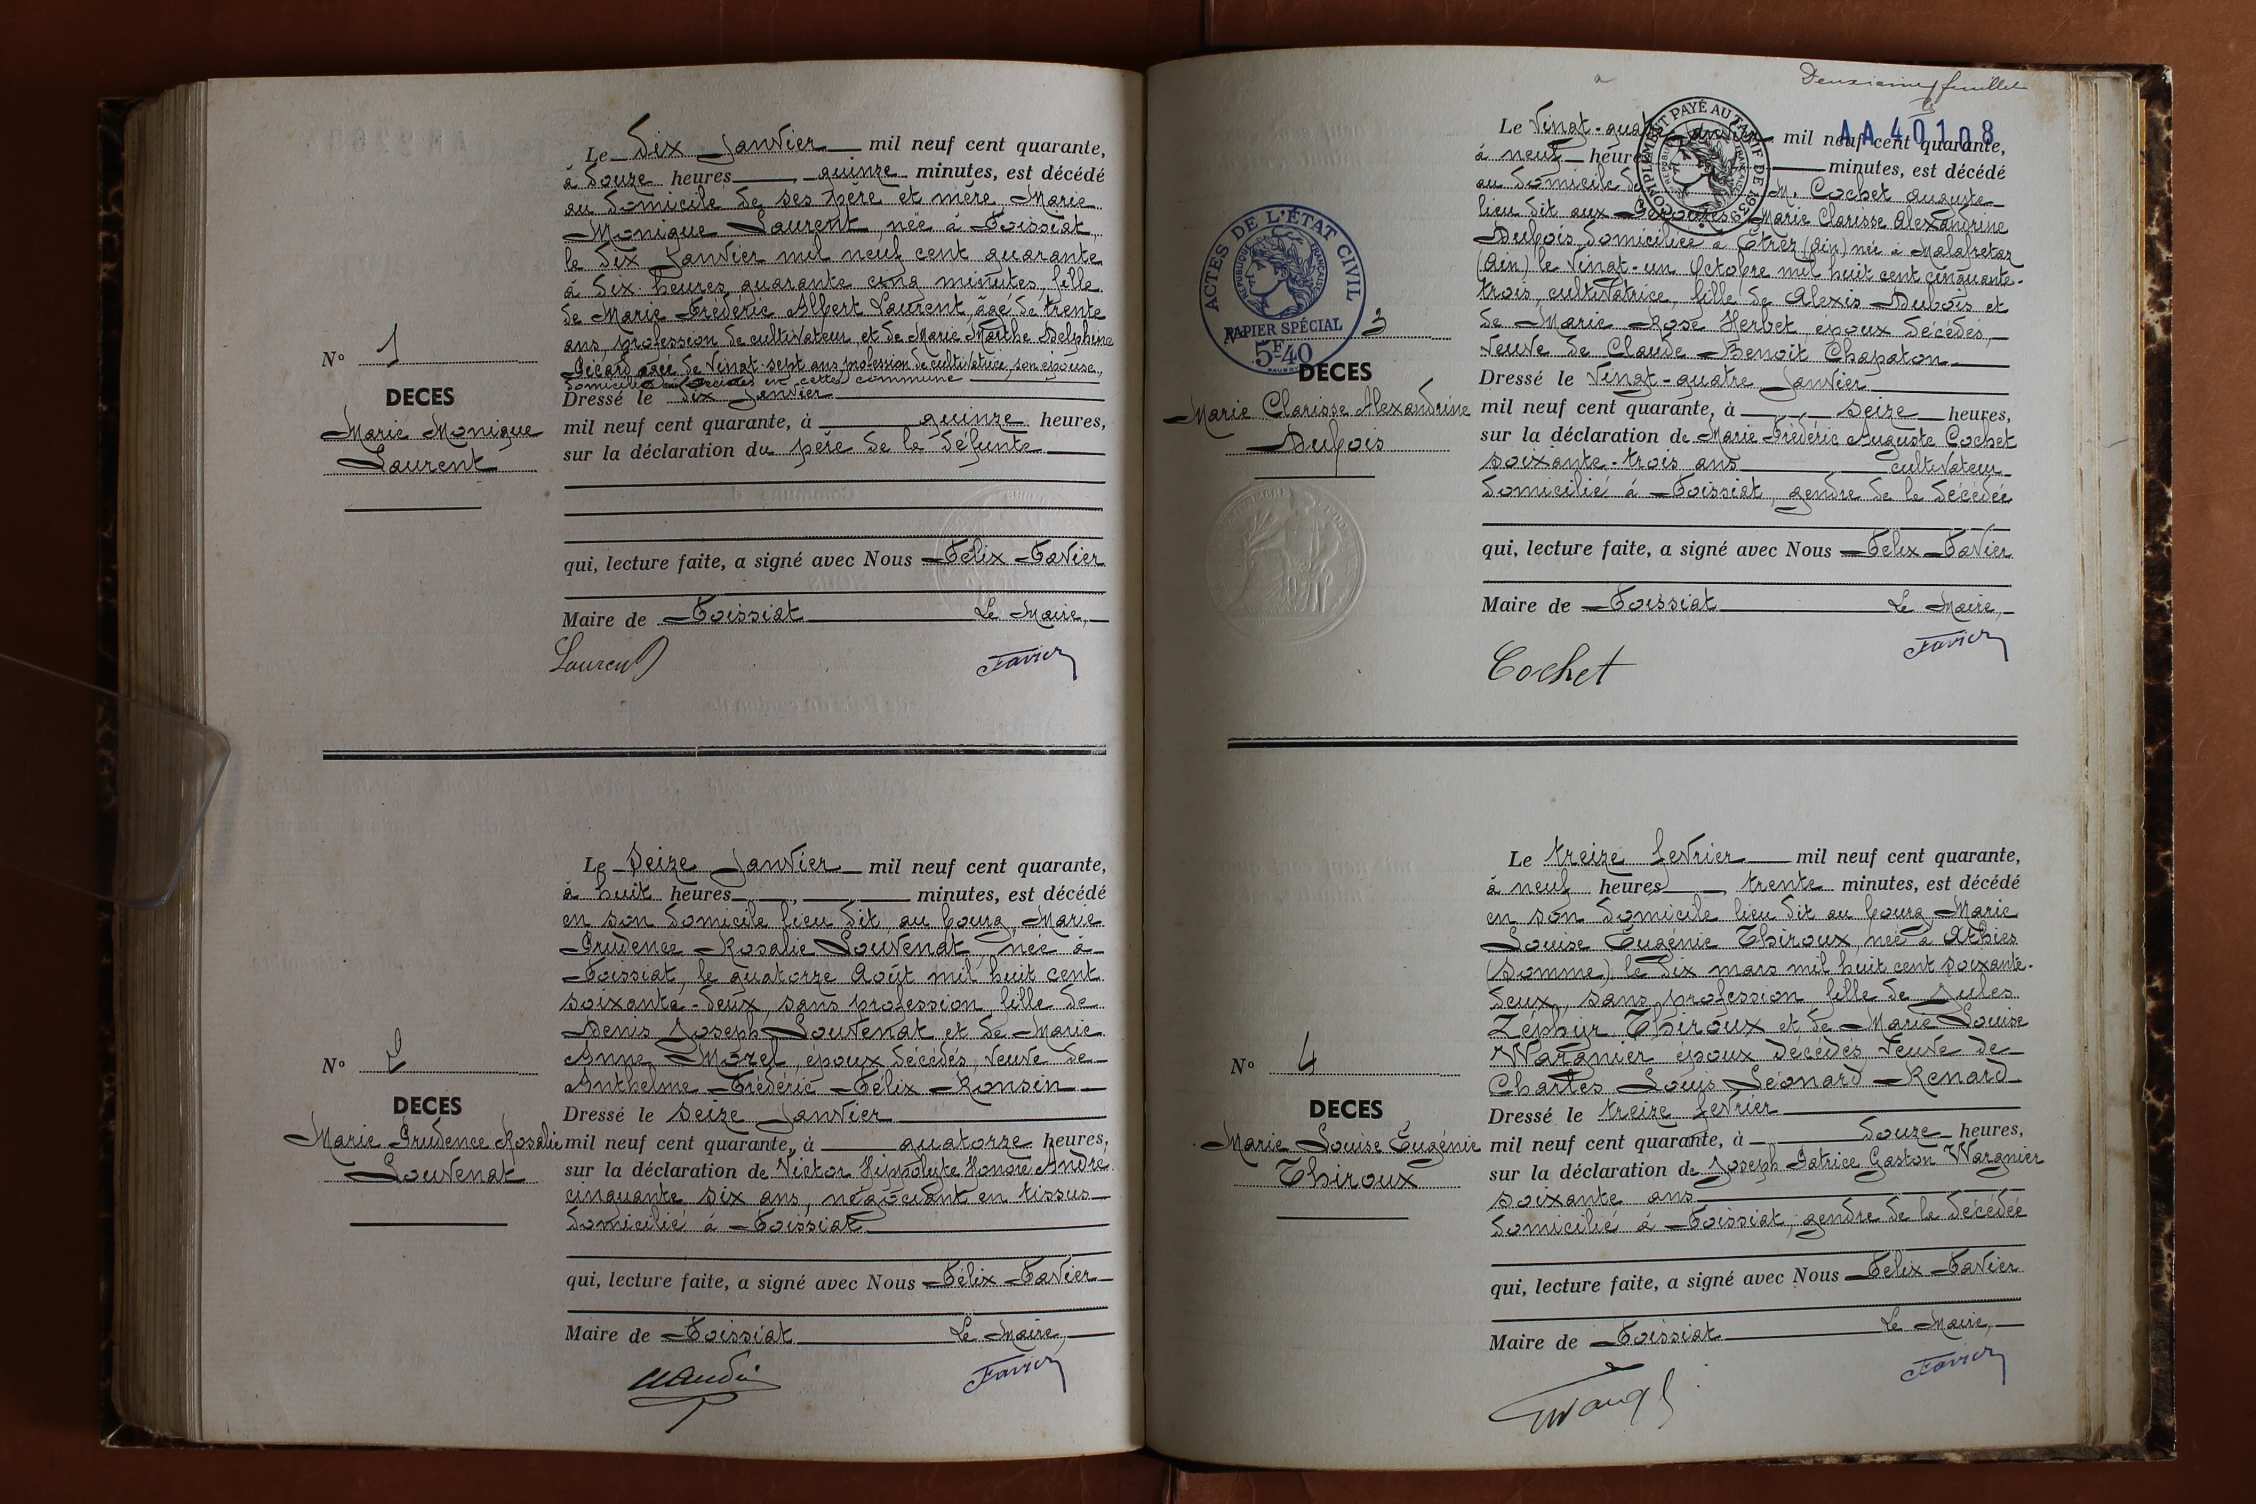 Le dix Janvier mil neuf cent quarante,
à douze heures quinze minutes, est décédé
au domicile de ses père et mère, Marie
Monique Laurent, née à Foissiat,
le dix Janvier mil neuf cent quarante
à dix heures, quarante cinq minutes, fille
de Marie Frédéric Albert Laurent, âgé de trente
ans, profession de cultivateur et de Marie Marthe Delphine
Pécard agée de vingt-sept ans, profession de cultivatrice, son épouse,
domiciliés en cette commune
N° 1
DECES
Marie Monique
Laurent
Dressé le dix Janvier
mil neuf cent quarante, à quinze heures,
sur la déclaration du père de la défunte
qui, lecture faite, a signé avec Nous Félix Favier
Maire de Foissiat Le Maire,
Laurent Favier
Le seize Janvier mil neuf cent quarante,
à huit heures minutes, est décédé
en son domicile lieu dit au bourg, Marie
Prudence Rosalie Louvenat, née à
Foissiat, le quatorze Août mil huit cent
soixante-deux, sans profession, fille de
Denis Joseph Louvenat et de Marie
Anne Morel, époux décédés, veuve de
Anthelme Frédéric Félix Ronsin
N° 2
DECES
Marie Prudence Rosalie
Louvenat
Dressé le seize Janvier
mil neuf cent quarante, à quatorze heures,
sur la déclaration de Victor Hippolyte Honoré André
cinquante six ans, négociant en tissus
domicilié à Foissiat
qui, lecture faite, a signé avec Nous Félix Favier
Maire de Foissiat Le Maire,
Favier
Deuxième feuillet
AA 40108
COMPLEMENT PAYÉ AU TARIF DE 1939
Le vingt-quatre mil neuf cent quarante,
à neuf heures minutes, est décédé
au domicile de M. Cochet Auguste
lieu dit aux Marie Clarisse Alexandrine
Dubois domiciliée à Etrez (Ain) née à Malafretaz
(Ain) le vingt-un Octobre mil huit cent cinquante-
trois, cultivatrice, fille de Alexis Dubois et
de Marie Rose Herbet, époux décédés,
veuve de Claude Benoit Chapaton
ACTES DE L'ÉTAT CIVIL
RÉPUBLIQUE FRANÇAISE
PAPIER SPÉCIAL
5F40
3
DECES
Marie Clarisse Alexandrine
Dubois
Dressé le vingt-quatre Janvier
mil neuf cent quarante, à seize heures,
sur la déclaration de Marie Frédéric Auguste Cochet
soixante-trois ans cultivateur
domicilié à Foissiat, gendre de la décédée
qui, lecture faite, a signé avec Nous Félix Favier
Maire de Foissiat Le Maire,
Cochet Favier
Le treize février mil neuf cent quarante,
à neuf heures trente minutes, est décédé
en son domicile lieu dit au bourg Marie
Louise Eugénie Thiroux, née à Athies
(Somme), le dix mars mil huit cent soixante-
deux, sans profession fille de Jules
Zéphyr Thiroux et de Marie Louise
Wargnier époux décédés veuve de
Charles Louis Léonard Renard
N° 4
DECES
Marie Louise Eugénie
Thiroux
Dressé le treize février
mil neuf cent quarante, à douze heures,
sur la déclaration de Joseph Patrice Gaston Wargnier
soixante ans
domicilié à Foissiat, gendre de la décédée
qui, lecture faite, a signé avec Nous Félix Favier
Maire de Foissiat Le Maire,
Favier